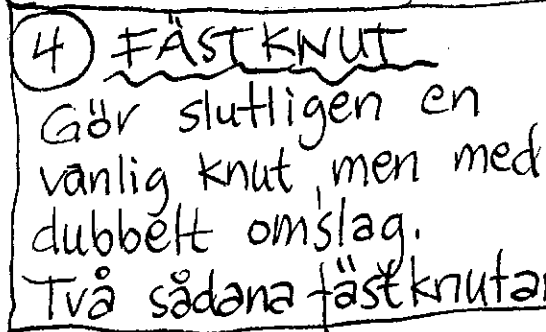 4 FÄSTKNUT
Gör slutligen en
vanlig knut, men med
dubbelt omslag.
Två sådana fästknuta